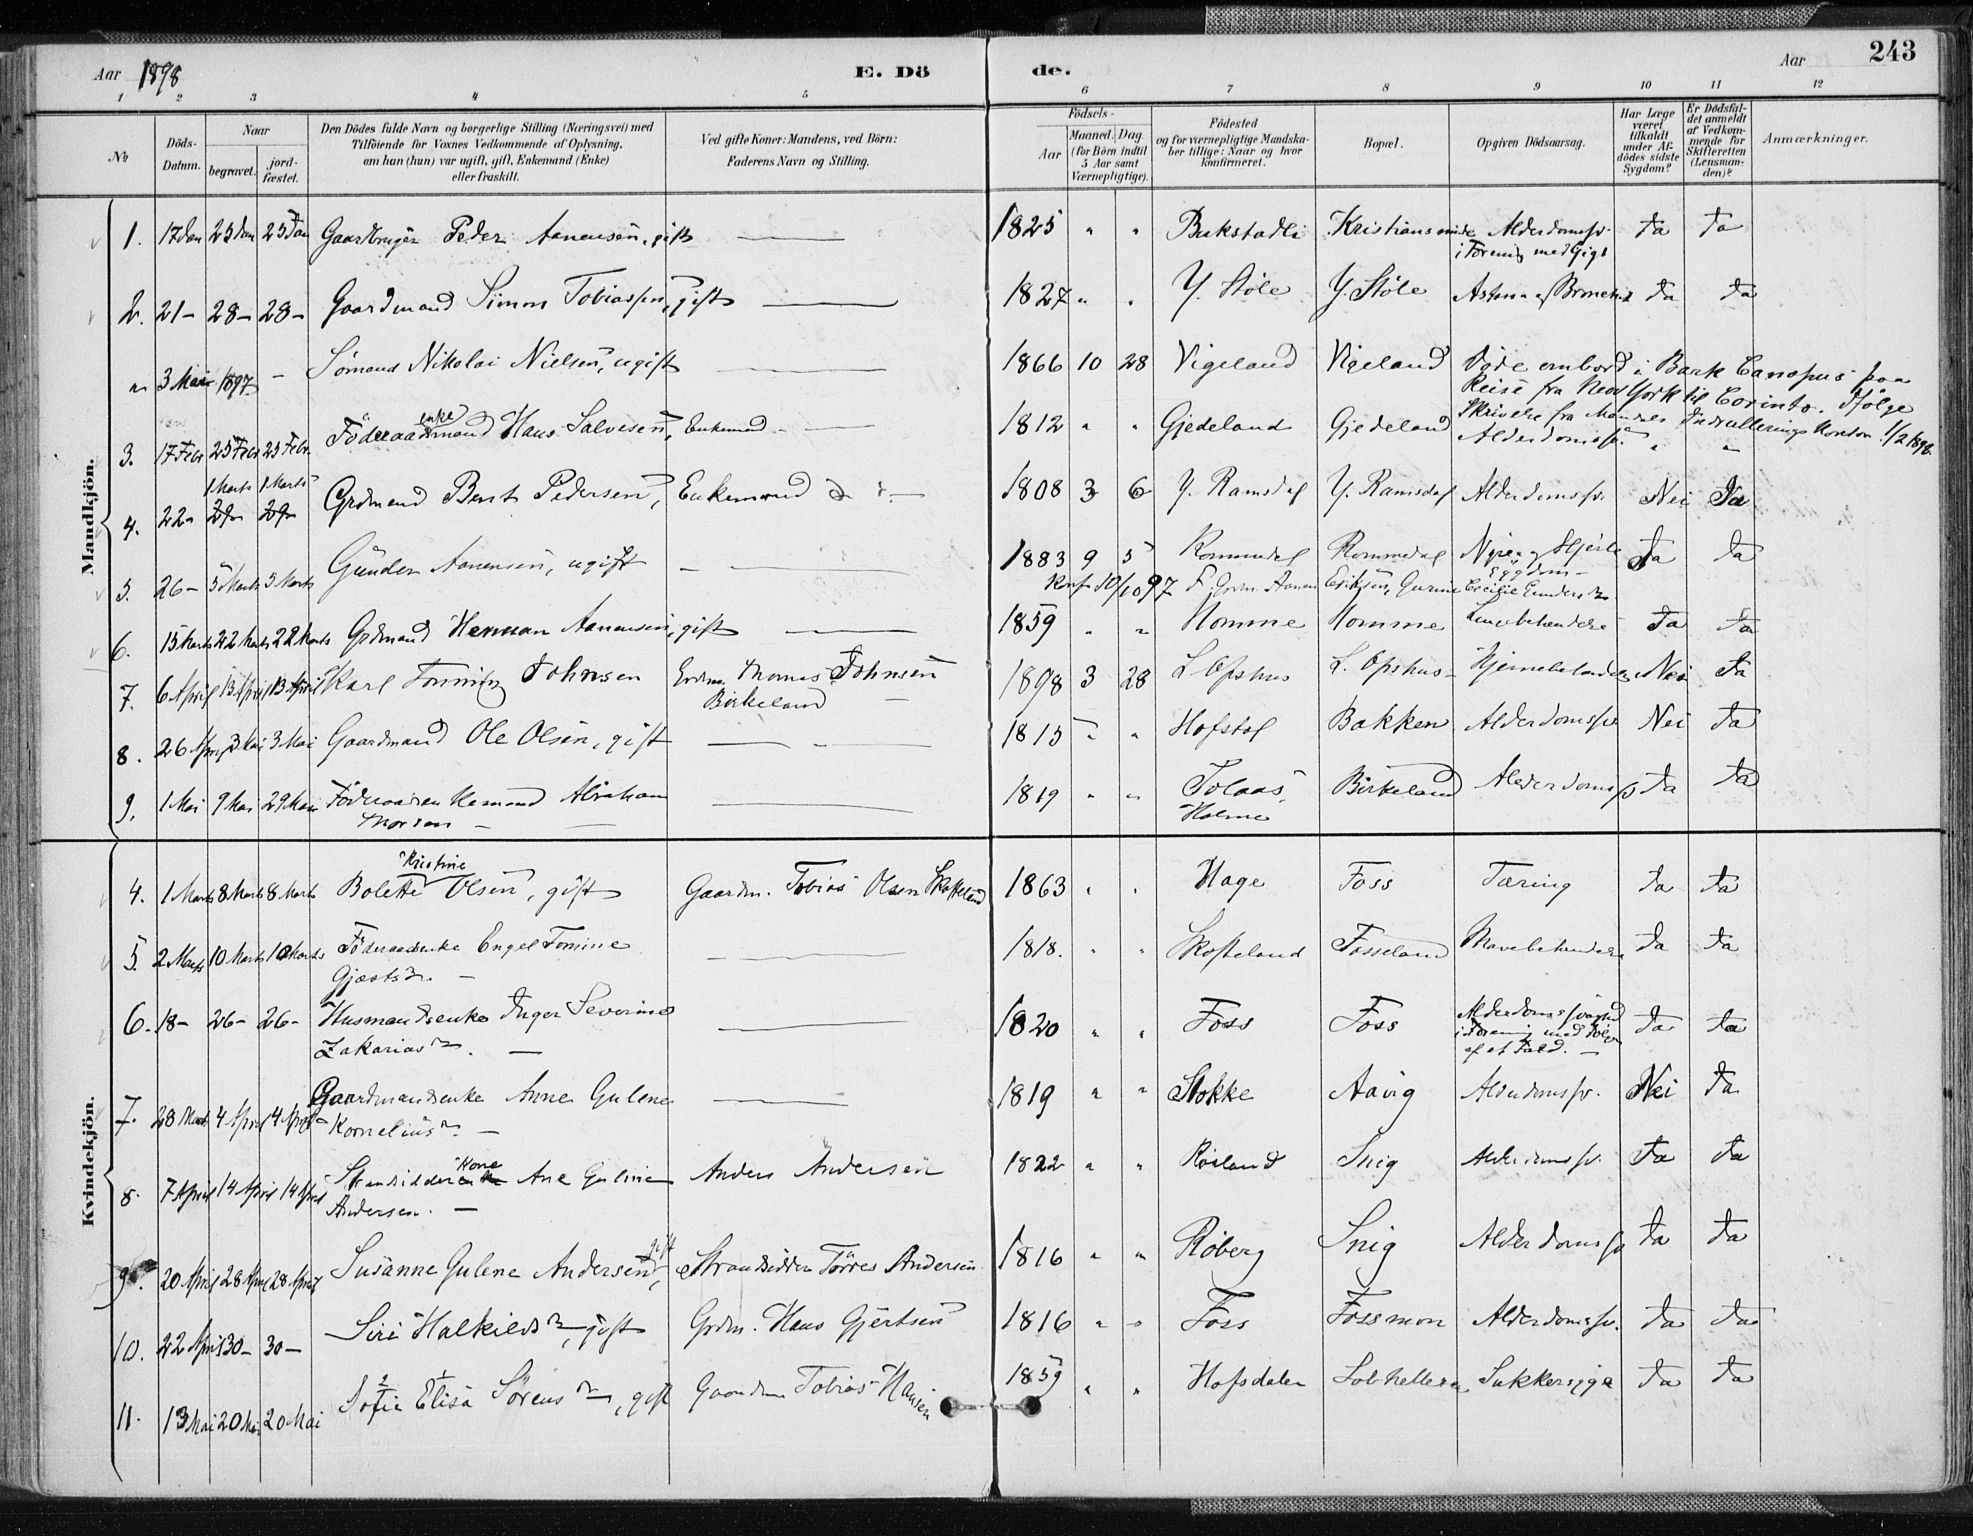 Aar 1898 E. Dö de. Aar 243
1 2 3 4 5 6 7 8 9 10 11 12
No
Döds-Datum.
Naar
begravet.
jord-fæstet.
Den Dödes fulde Navn og borgerlige Stilling (Næringsvei) med
Tilföiende for Voxnes Vedkommende af Oplysning,
om han (hun) var ugift, gift, Enkemand (Enke)
eller fraskilt.
Ved gifte Koner: Mandens, ved Börn:
Faderens Navn og Stilling.
Födsels-
Aar
Maaned. Dag.
(for Börn indtil
5 Aar samt
Værnepligtige).
Födested
og for værnepligtige Mandska-
ber tillige: Naar og hvor
konfirmeret.
Bopæl.
Opgiven Dödsaarsag.
Har Læge
været
tilkaldt
under Af-
dödes sidste
Sygdom?
Er Dödsfal-
det anmeldt
af Vedkom-
mende for
Skifteretten
(Lensman-
den)?
Anmærkninger.
Mandkjön.
1. 17 Jan 25 Jan 25 Jan Gaardbruger Peder Aanensen, gift — 1825 " " Bukstadli Kristiansminde Alderdomssv. Ja Ja
i Forening med Gigt
2. 21 – 28 – 28 – Gaardmand Simon Tobiassen, gift — 1827 " " Y. Støle Y. Støle Astma Ja Ja
" 3 Mai 1897 – Sømand Nikolai Nielsen, ugift — 1866 10 28 Vigeland Vigeland Døde ombord i Bark Canopus paa
Reise fra New York til Corinto. Ifølge
Skrivelse fra Mandals Indrulleringskontor 1/2 1898.
3. 17 Febr 25 Febr 25 Febr. Föderaadsmand Hans Salvesen, Enkemand – 1812 " " Gjedeland Gjedeland Alderdomssv. " "
1 Marts 1 Marts
4. 22 – 29 29 Grdmand Bent Pedersen, Enkemand — 1808 3 6 Y. Ramsdal Y. Ramsdal Alderdomssv. Nei Ja
5. 26 – 5 Marts 5 Marts Gunder Aanensen, ugift — 1883 9 5 Rommedal Rommedal Nyre og Hjerte Ja Ja
Sygdom –
Konf 10/10 97 F. Grdm. Aanen Eriksen, Gurine Cecilie Gundersdr
6. 15 Marts 22 Marts 22 Marts Grdmand Herman Aanensen, gift — 1859 " " Homme Homme Lungebetændelse Ja Ja
7. 6 April 13 April 13 April Karl Johnsen Grdm. Thomas Johnsen 1898 3 28 L. Opshus L. Opshus – Hjernebetændelse Nei Ja
Birkeland –
8. 26 April 3 Mai 3 Mai Gaardmand Ole Olsen, gift — 1815 " " Hofstøl Bakken Alderdomssv. Nei Ja
9. 1 Mai 9 Mai 29 Mai Abraham — 1819 " " Tolaas, Birkeland Alderdomssv Ja Ja
Holme
Kvindekjön.
Kristine
4. 1 Marts 8 Marts 8 Marts Bolette Olsen, gift Gaardm. Tobias Olsen Skofteland 1863 " " Hage Foss Tæring Ja Ja
5. 2 Marts 10 Marts 10 Marts Föderaadsenke Engel Tomine — 1818. " " Skofteland Fosseland Mavebetændelse Ja Ja
Gjertsdr. –
6. 18 – 26 – 26 – Husmandsenke Inger Severine — 1820 " " Foss Foss Alderdomssvaghed Ja Ja
Zakariasdr. – i Forening med Følger
af et Fald. –
7. 28 Marts 4 April 4 April Gaardmandsenke Anne Gulene — 1819 " " Stokke Aavig Alderdomssv. Nei Ja
Korneliusdr. –
Kone
8. 7 April 14 April 14 April Strandsidder Ane Guline Anders Andersen 1822 " " Røiland Snig Alderdomssv. Ja Ja
Andersen. –
gift
9. 20 April 28 April 28 April Susanne Gulene Andersen, Strandsidder Tørres Andersen 1816 " " Røberg Snig Alderdomssv Ja Ja
10. 22 April 30 – 30 – Siri Halkildsdr, gift Grdm. Hans Gjertsen 1816 " " Foss Fossmon Alderdomssv. Ja Ja
11. 13 Mai 20 Mai 20 Mai Sofie Elisa Sørensdr, gift Gaardm Tobias Hansen 1859 " " Hofsdalen Solhelleren Sukkersyge Ja Ja